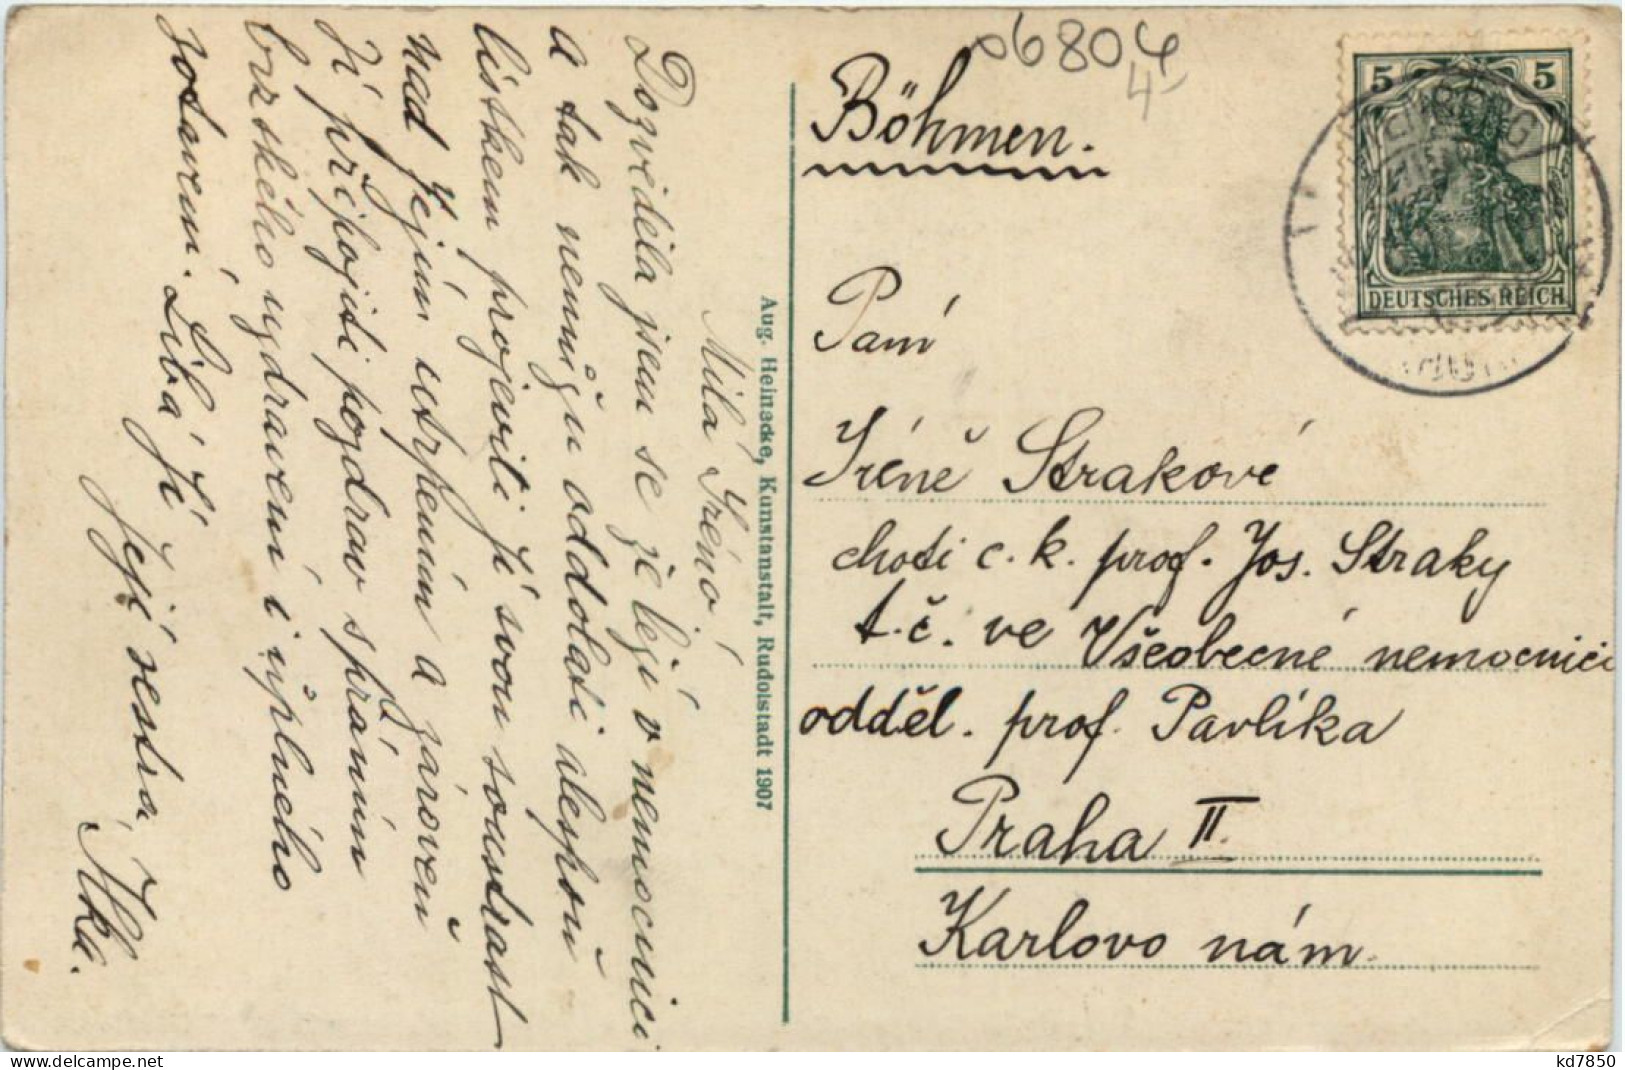 06804
4
Böhmen.
5 5
DEUTSCHES REICH
Paní
Iréně Strakové
choti c. k. prof. Jos. Straky
t. č. ve Všeobecné nemocnici
odděl. prof. Pavlíka
Praha II.
Karlovo nám.
Aug. Heinecke, Kunstanstalt, Rudolstadt 1907
Milá Iréno!
Dozvěděla jsem se že leží v nemocnici
a tak nemůžu oddolati alespoň
lístkem projeviti Jí svou soustrast
nad Jejím utrpením a zároveň
Jí připojiti pozdrav s přáním
brzského uzdravení i úplného
zotavení. Líbá Jí
Její sestra, Ilka.
www.delcampe.net
kd7850